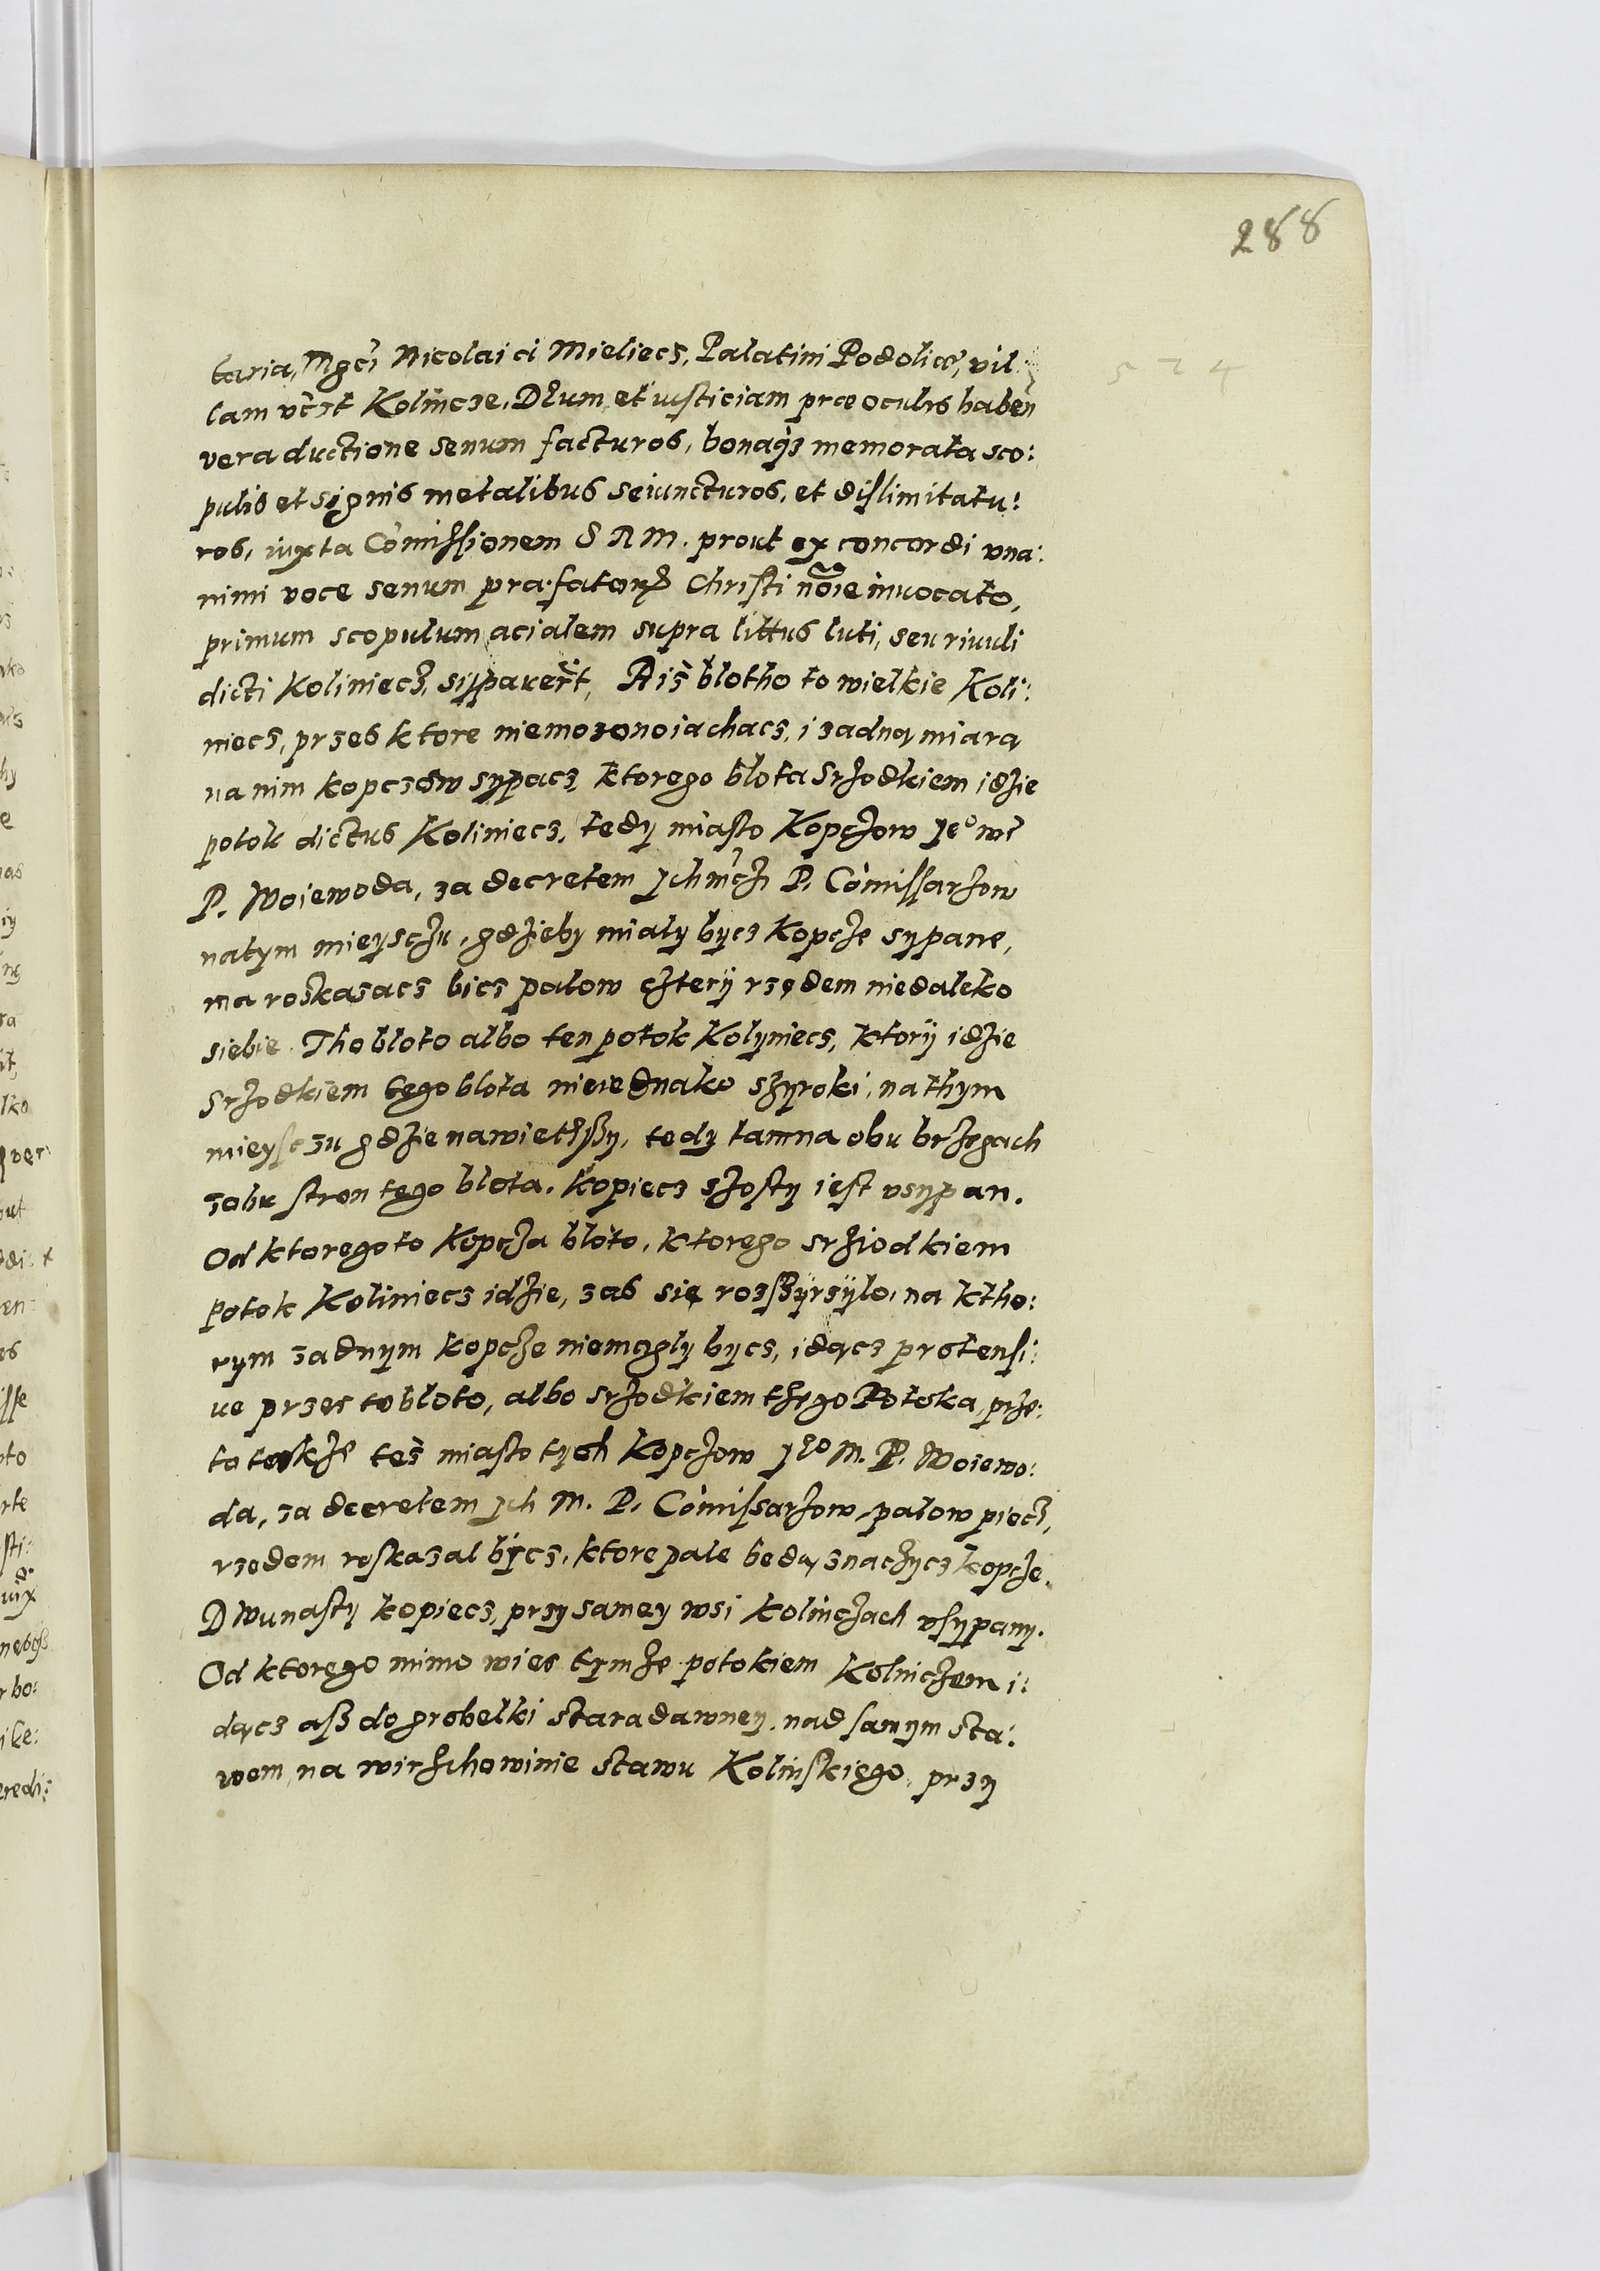 288
574
taria, Mgci Nicolai ci Mieliecz, Palatini Podoliæ, vil
lam vczt Kolincze, Dẽum, et iusticiam præ oculis habeñ
vera ductione senum facturos, bonaqз memorata sco:
pulis et signis metalibus seiuncturos, et dislimitatu:
ros, iuxta Comissionem S R M. prout ex concordi vna:
nimi voce senum præfatorꝝ Christi noĩe inuocato,
primum scopulum acialem supra littus luti, seu riuuli
dicti Koliniecz, sipparert, Aiz blotho to wielkie Koli:
niecz, przes ktore niemozono iachacz, i zadną miarą
na nim kopczow sypacz, ktorego błota srzodkiem idzie
potok dictus Koliniecz, tedy miasto Kopczow Jeo
P. Woiewoda, za decretem Jchmczi P. Comissarzow
natym mieysczu, gdzieby miały bycz Kopcze sypane,
ma roskazacz bicz palow cztery rzędem niedaleko
siebie. Tho bloto albo ten potok Kolyniecz, ktory idzie
Srzodkiem tego blota nieiednako szyroki, na thym
mieysczu gdzie nawiethszy, tedy tam na obu brzegach
zobu stron tego blota, kopiecz szosty iest vsypan.
Od ktorego to Kopcza bloto, ktorego srziodkiem
potok Koliniecz idzie, zas się rozszyrzylo, na ktho:
rym zadnym kopcze niemogly bycz, idącz protensi:
ue przez to bloto, albo srzodkiem thego Potoka, prze:
to takze tez miasto tych Kopczow Jeo M. P. Woiewo:
da, za decretem Jch M. P. Comissarzow, palow piecz,
rzedem roskazal bycz, ktore pale bedą znaczycz kopcze.
Dwunasty kopiecz, przy samey wsi Kolinczach vsypany.
Od ktorego mimo wies tymze potokiem Kolniczem i:
dącz asz do grobelki staradawney, nad samym sta:
wem, na wirzchowinie stawu Kolinskiego, przy